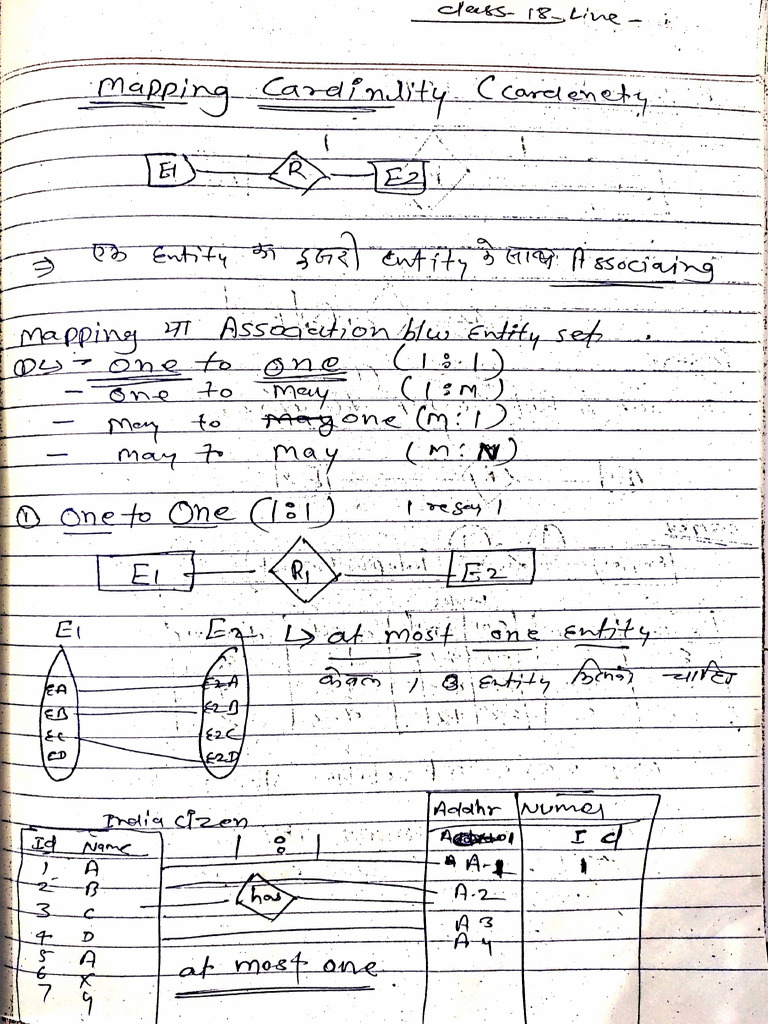 class-18-Line-
Mapping Cardinlity (cardenety
E1 R E2
⇒ एक Entity का दूसरी entity के साथ Associaing
Mapping या Association b/w Entity set.
- one to one (1:1)
- one to may (1:M)
- may to one (M:1)
- may to may (M:N)
① One to One (1:1)
E1 R1 E2
E1 E2 ↳ at most one entity
केवल 1 entity चाहिए
EA E2A
EB E2B
EC E2C
ED E2D
India cizen
Addhr Numer
Id Name 1:1 Id
1 A A-1 1
2 B has A-2
3 C A3
4 D A-4
5 A at most one
6 X
7 y